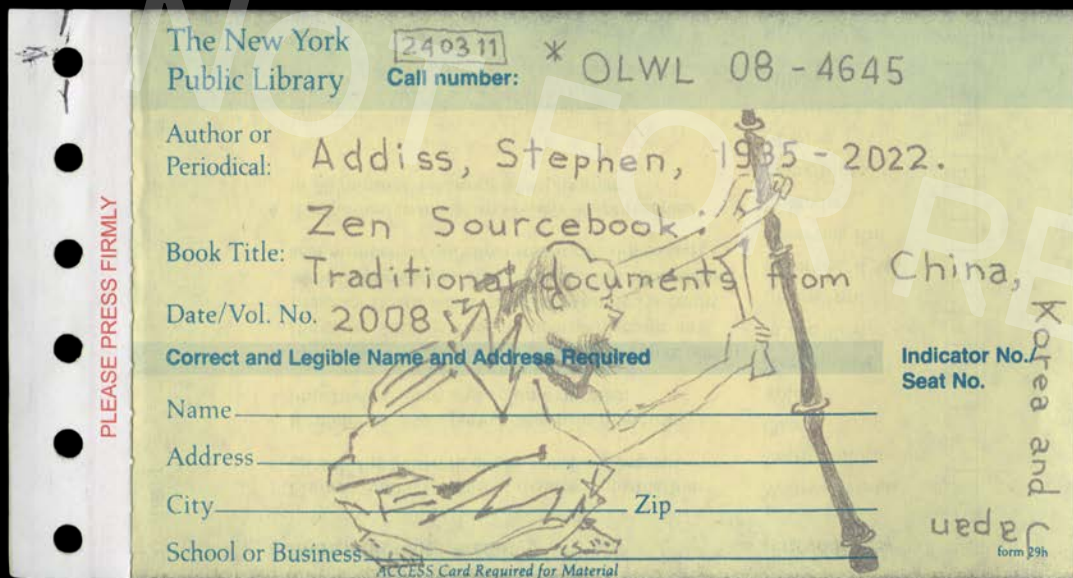 NOT FOR RE
PLEASE PRESS FIRMLY
The New York
Public Library
240311
Call number:
* OLWL 08-4645
Author or
Periodical:
Addiss, Stephen, 1935-2022.
Book Title:
Zen Sourcebook:
Traditional documents from China,
Karea and
Japan
Date/Vol. No. 2008
Correct and Legible Name and Address Required
Indicator No./
Seat No.
Name
Address
City Zip
School or Business
ACCESS Card Required for Material
form 29h